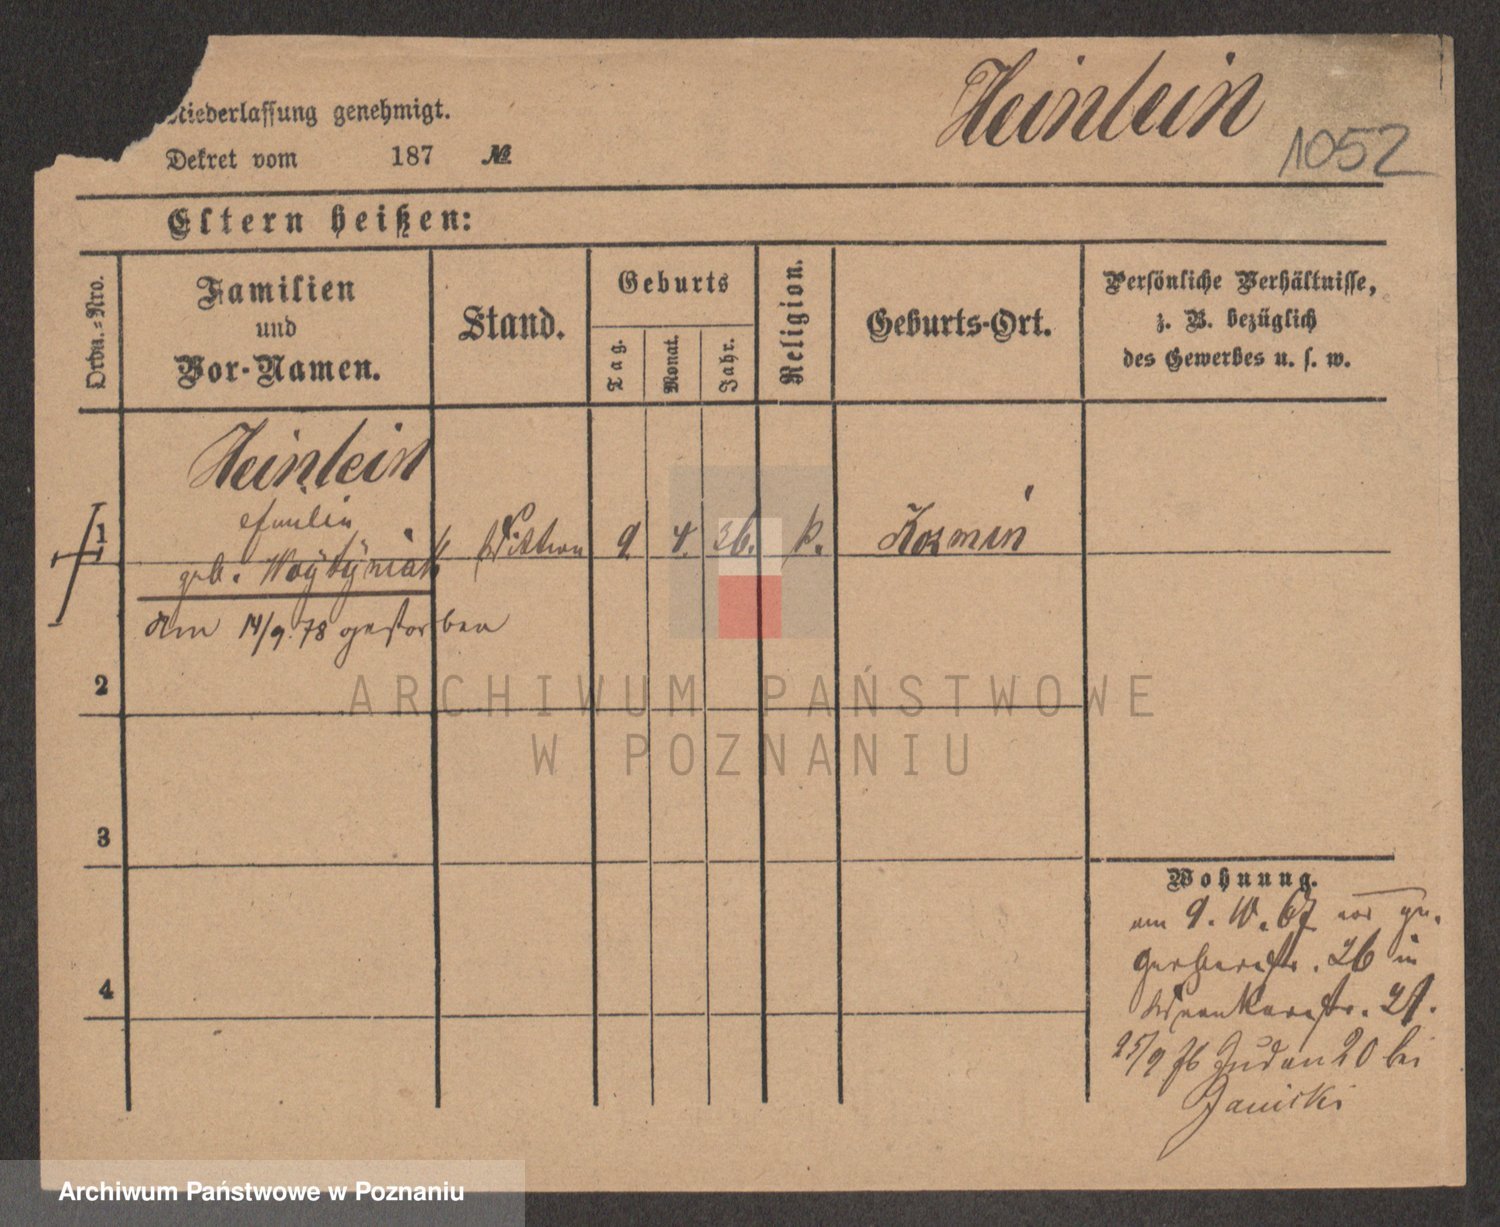 Heinlein
1052
Niederlassung genehmigt.
Dekret vom 187 №
Eltern heißen:
Ordn.=Nro.
Familien
und
Vor-Namen.
Stand.
Geburts
Tag.
Monat.
Jahr.
Religion.
Geburts-Ort.
Persönliche Verhältnisse,
z. B. bezüglich
des Gewerbes u. s. w.
Heinlein
1
geb. Woÿtÿniak
Wittwe 9 4. 36. k. Kozmin
Am 14/9. 78 gestorben
2
3
4
Wohnung.
am 9. 10. 67
Gerberstr. 26 in
21.
25/9 76 Juden 20 bei
Janicki
ARCHIWUM PAŃSTWOWE
W POZNANIU
Archiwum Państwowe w Poznaniu